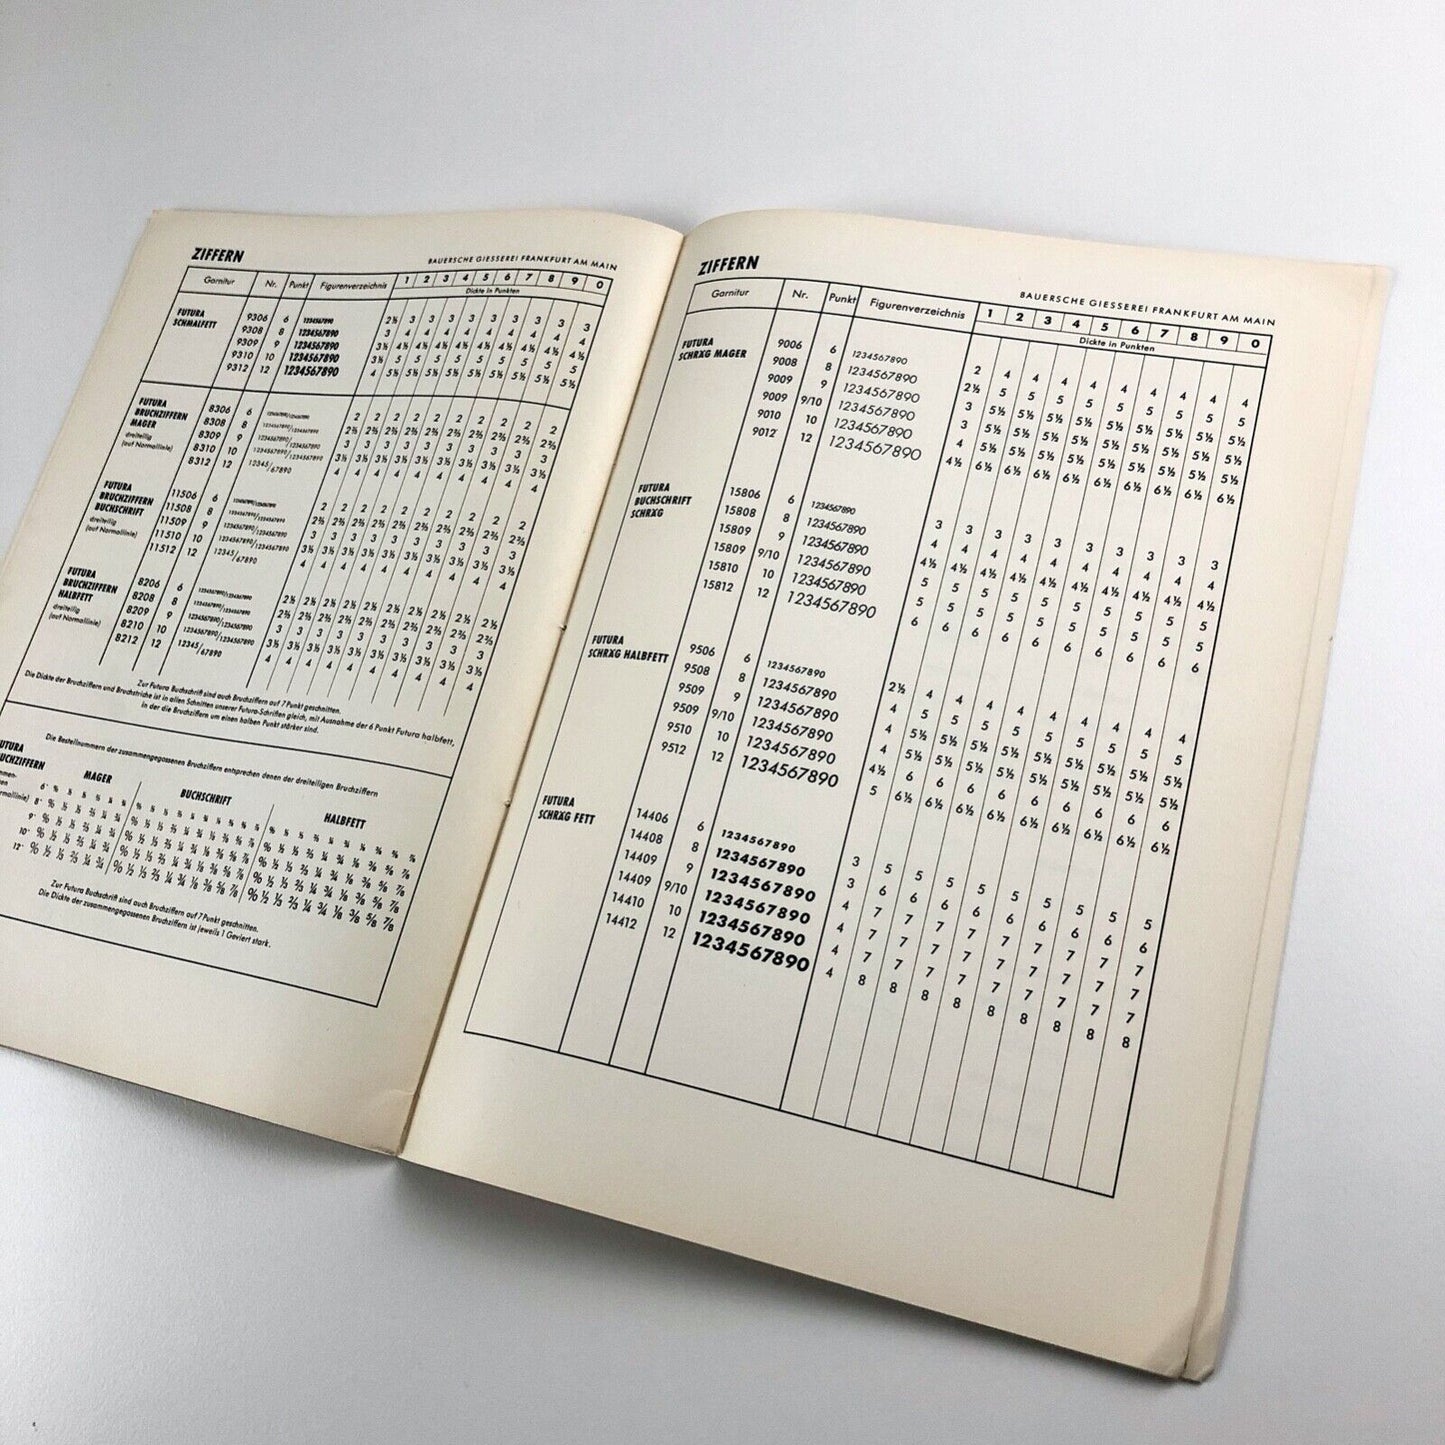 ZIFFERN
BAUERSCHE GIESSEREI FRANKFURT AM MAIN
Garnitur Nr. Punkt Figurenverzeichnis 1 2 3 4 5 6 7 8 9 0
Dickte in Punkten
FUTURA
SCHMALFETT
9306 6 1234567890 2½ 3 3 3 3 3 3 3 3 3
9308 8 1234567890 3 4 4 4 4 4 4 4 4 4
9309 9 1234567890 3½ 4½ 4½ 4½ 4½ 4½ 4½ 4½ 4½ 4½
9310 10 1234567890 3½ 5 5 5 5 5 5 5 5 5
9312 12 1234567890 4 5½ 5½ 5½ 5½ 5½ 5½ 5½ 5½ 5½
FUTURA
BRUCHZIFFERN
MAGER
dreiteilig
(auf Normallinie)
8306 6 1234567890/1234567890 2 2 2 2 2 2 2 2 2 2
8308 8 1234567890/1234567890 2⅔ 2⅔ 2⅔ 2⅔ 2⅔ 2⅔ 2⅔ 2⅔ 2⅔ 2⅔
8309 9 1234567890/1234567890 3 3 3 3 3 3 3 3 3 3
8310 10 1234567890/1234567890 3½ 3½ 3½ 3½ 3½ 3½ 3½ 3½ 3½ 3½
8312 12 12345/67890 4 4 4 4 4 4 4 4 4 4
FUTURA
BRUCHZIFFERN
BUCHSCHRIFT
dreiteilig
(auf Normallinie)
11506 6 1234567890/1234567890 2 2 2 2 2 2 2 2 2 2
11508 8 1234567890/1234567890 2⅔ 2⅔ 2⅔ 2⅔ 2⅔ 2⅔ 2⅔ 2⅔ 2⅔ 2⅔
11509 9 1234567890/1234567890 3 3 3 3 3 3 3 3 3 3
11510 10 1234567890/1234567890 3½ 3½ 3½ 3½ 3½ 3½ 3½ 3½ 3½ 3½
11512 12 12345/67890 4 4 4 4 4 4 4 4 4 4
FUTURA
BRUCHZIFFERN
HALBFETT
dreiteilig
(auf Normallinie)
8206 6 1234567890/1234567890 2½ 2½ 2½ 2½ 2½ 2½ 2½ 2½ 2½ 2½
8208 8 1234567890/1234567890 2⅔ 2⅔ 2⅔ 2⅔ 2⅔ 2⅔ 2⅔ 2⅔ 2⅔ 2⅔
8209 9 1234567890/1234567890 3 3 3 3 3 3 3 3 3 3
8210 10 1234567890/1234567890 3½ 3½ 3½ 3½ 3½ 3½ 3½ 3½ 3½ 3½
8212 12 12345/67890 4 4 4 4 4 4 4 4 4 4
Zur Futura Buchschrift sind auch Bruchziffern auf 7 Punkt geschnitten.
Die Dickte der Bruchziffern und Bruchstriche ist in allen Schnitten unserer Futura-Schriften gleich, mit Ausnahme der 6 Punkt Futura halbfett,
in der die Bruchziffern um einen halben Punkt stärker sind.
Die Bestellnummern der zusammengegossenen Bruchziffern entsprechen denen der dreiteiligen Bruchziffern
MAGER BUCHSCHRIFT HALBFETT
Zur Futura Buchschrift sind auch Bruchziffern auf 7 Punkt geschnitten.
Die Dickte der zusammengegossenen Bruchziffern ist jeweils 1 Geviert stark.
ZIFFERN
BAUERSCHE GIESSEREI FRANKFURT AM MAIN
Garnitur Nr. Punkt Figurenverzeichnis 1 2 3 4 5 6 7 8 9 0
Dickte in Punkten
FUTURA
SCHRÄG MAGER
9006 6 1234567890 2 4 4 4 4 4 4 4 4 4
9008 8 1234567890 2½ 5 5 5 5 5 5 5 5 5
9009 9 1234567890 3 5½ 5½ 5½ 5½ 5½ 5½ 5½ 5½ 5½
9009 9/10 1234567890 3 5½ 5½ 5½ 5½ 5½ 5½ 5½ 5½ 5½
9010 10 1234567890 4 5½ 5½ 5½ 5½ 5½ 5½ 5½ 5½ 5½
9012 12 1234567890 4½ 6½ 6½ 6½ 6½ 6½ 6½ 6½ 6½ 6½
FUTURA
BUCHSCHRIFT
SCHRÄG
15806 6 1234567890 3 3 3 3 3 3 3 3 3 3
15808 8 1234567890 4 4 4 4 4 4 4 4 4 4
15809 9 1234567890 4½ 4½ 4½ 4½ 4½ 4½ 4½ 4½ 4½ 4½
15809 9/10 1234567890
15810 10 1234567890 5 5 5 5 5 5 5 5 5 5
15812 12 1234567890 6 6 6 6 6 6 6 6 6 6
FUTURA
SCHRÄG HALBFETT
9506 6 1234567890 2½ 4 4 4 4 4 4 4 4 4
9508 8 1234567890 4 5 5 5 5 5 5 5 5 5
9509 9 1234567890 4 5½ 5½ 5½ 5½ 5½ 5½ 5½ 5½ 5½
9509 9/10 1234567890 4 5½ 5½ 5½ 5½ 5½ 5½ 5½ 5½ 5½
9510 10 1234567890 4½ 6 6 6 6 6 6 6 6 6
9512 12 1234567890 5 6½ 6½ 6½ 6½ 6½ 6½ 6½ 6½ 6½
FUTURA
SCHRÄG FETT
14406 6 1234567890 3 5 5 5 5 5 5 5 5 5
14408 8 1234567890 3 6 6 6 6 6 6 6 6 6
14409 9 1234567890 4 7 7 7 7 7 7 7 7 7
14409 9/10 1234567890 4 7 7 7 7 7 7 7 7 7
14410 10 1234567890 4 7 7 7 7 7 7 7 7 7
14412 12 1234567890 4 8 8 8 8 8 8 8 8 8